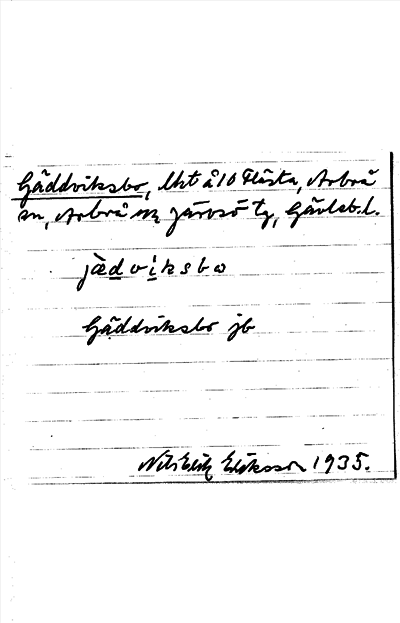 Gäddviksbo, lht å 10 Flästa, Arbrå
sn, Arbrå o. Järvsö tg, Gävleb. l.
jædviksbo
Gäddviksbo jb
Nils Erik Eriksson 1935.